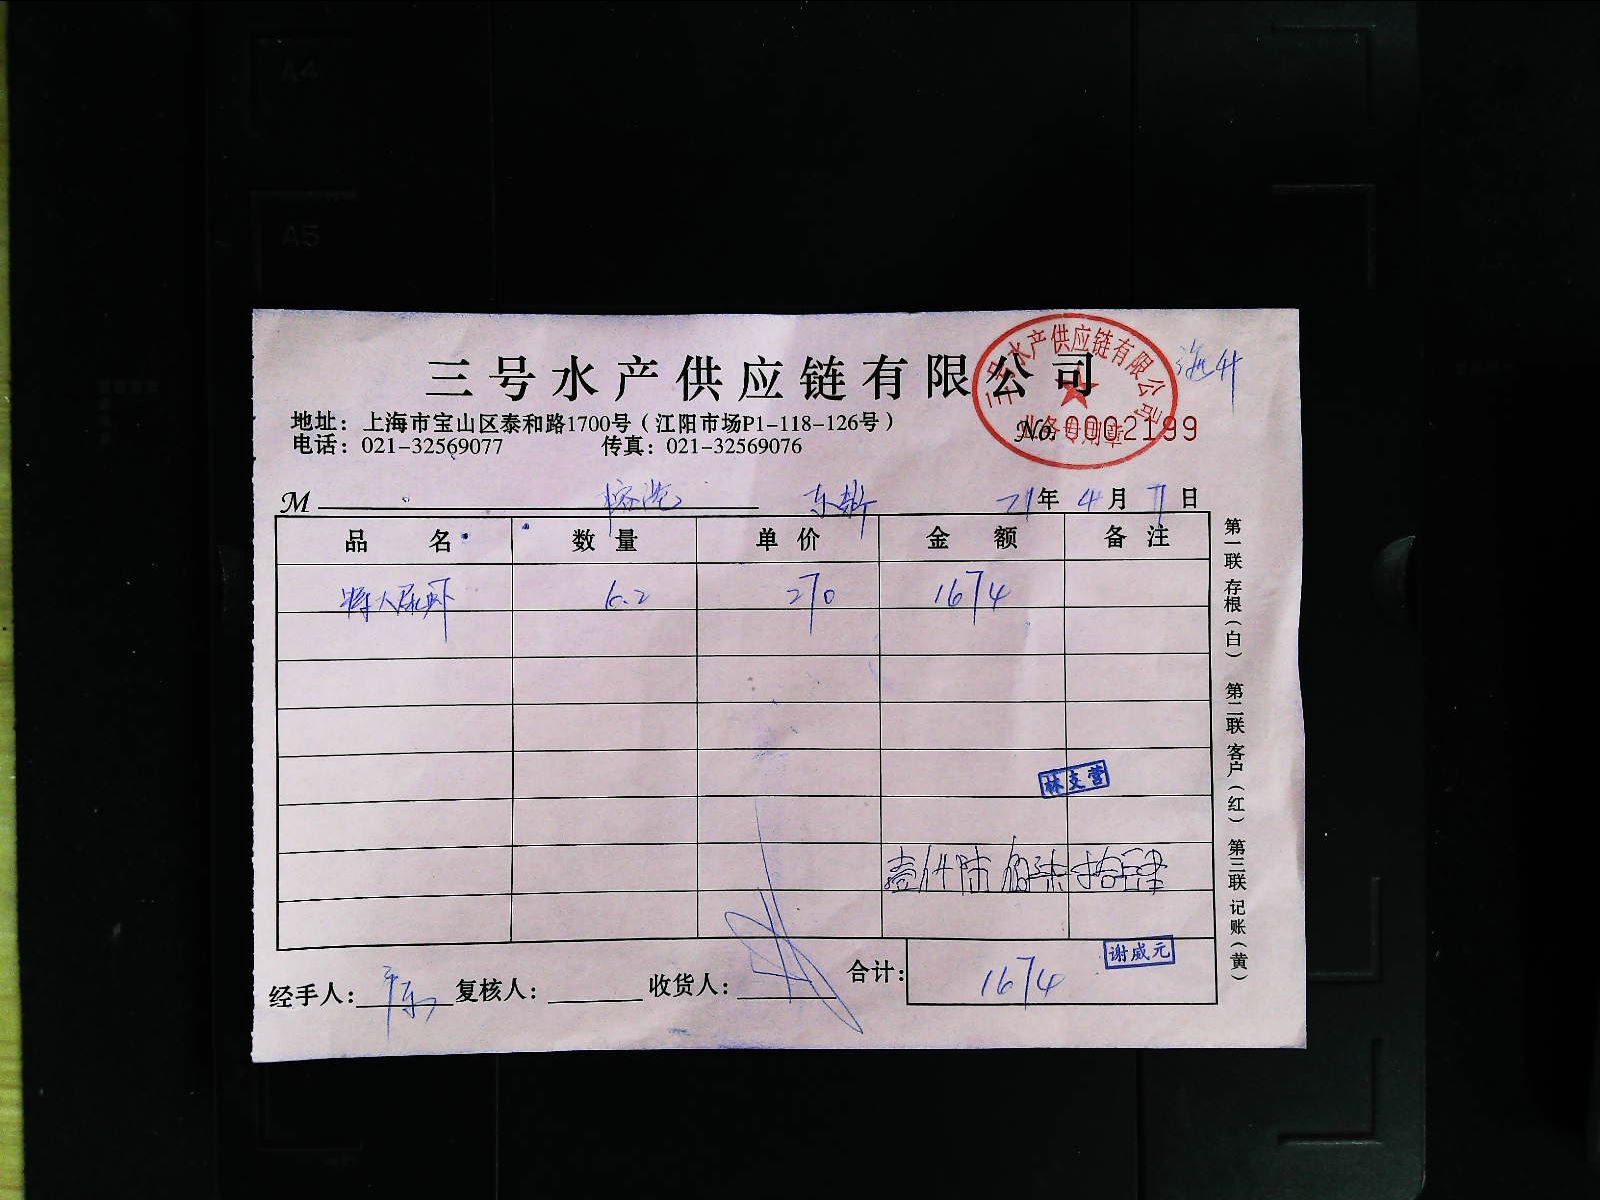 A4
A5
三号水产供应链有限公司
三号水产供应链有限公司
业务专用章
地址：上海市宝山区泰和路1700号（江阳市场P1-118-126号）
No. 0002199
电话：021-32569077 传真：021-32569076
M 21年 4月 7日
品名 数量 单价 金额 备注
6.2 270 1674
林支营
壹仟陆佰柒拾肆
谢威元
合计： 1674
经手人： 复核人： 收货人：
第一联 存根（白） 第二联 客户（红） 第三联 记账（黄）